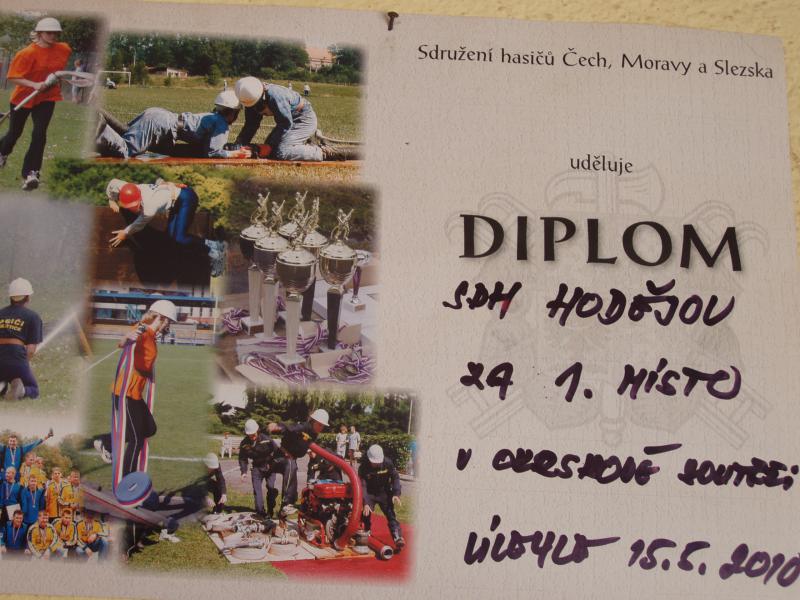 Sdružení hasičů Čech, Moravy a Slezska
uděluje
DIPLOM
SDH HODĚJOV
ZA 1. MÍSTO
V OKRSKOVÉ SOUTĚŽI
15.5. 2010